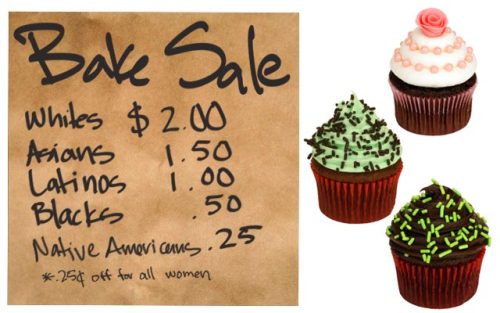 Bake Sale
Whites $ 2.00
Asians 1.50
Latinos 1.00
Blacks .50
Native Americans .25
*.25¢ off for all women